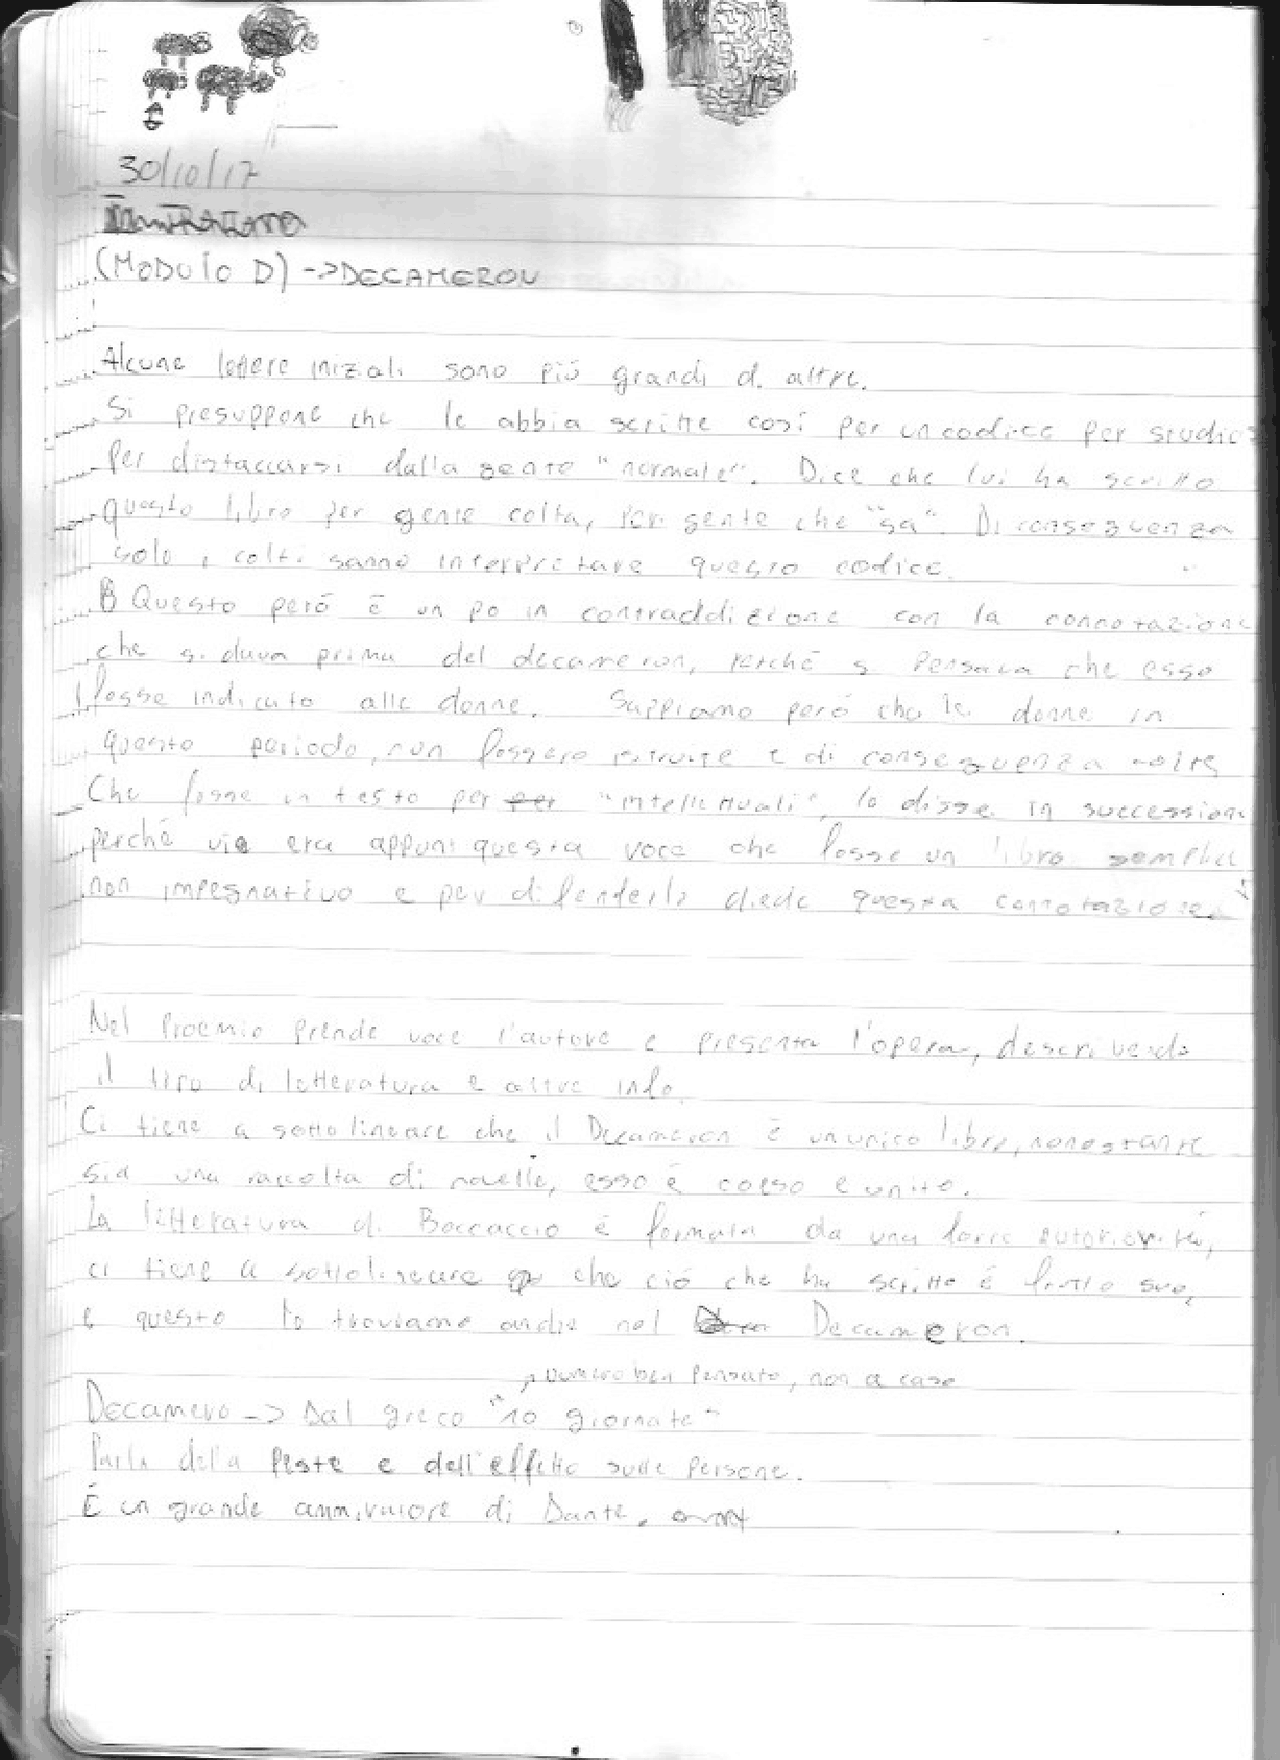 30/10/17
(MODULO D) -> DECAMERON
Alcune lettere iniziali sono più grandi di altre.
Si presuppone che le abbia scritte così per un codice per studiosi
per distaccarsi dalla gente "normale". Dice che lui ha scritto
questo libro per gente colta, per gente che "sa". Di conseguenza
solo i colti sanno interpretare questo codice.
Questo però è un po in contraddizione con la connotazione
che si dava prima del decameron, perché si pensava che esso
fosse indicato alle donne. Sappiamo però che le donne in
questo periodo, non fossero istruite e di conseguenza
Che fosse un testo per "intellettuali", lo disse in successione
perché vi era questa voce che fosse un libro semplice
non impegnativo e per difenderlo diede questa connotazione
Nel Proemio prende voce l'autore e presenta l'opera, descrivendo
il tipo di letteratura e altre info.
Ci tiene a sottolineare che il Decameron è un unico libro, nonostante
sia una raccolta di novelle, esso è coeso e unito.
La letteratura di Boccaccio è formata da una forte autorità,
ci tiene a sottolineare che ciò che ha scritto è frutto suo,
e questo lo troviamo anche nel Decameron.
numero ben pensato, non a caso
Decamero -> Dal greco "10 giornate"
Parla della Peste e dell'effetto sulle persone.
È un grande ammiratore di Dante.